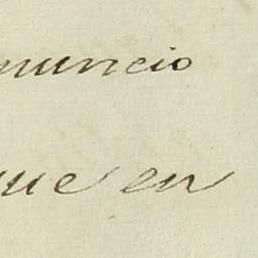 nuncio
que en